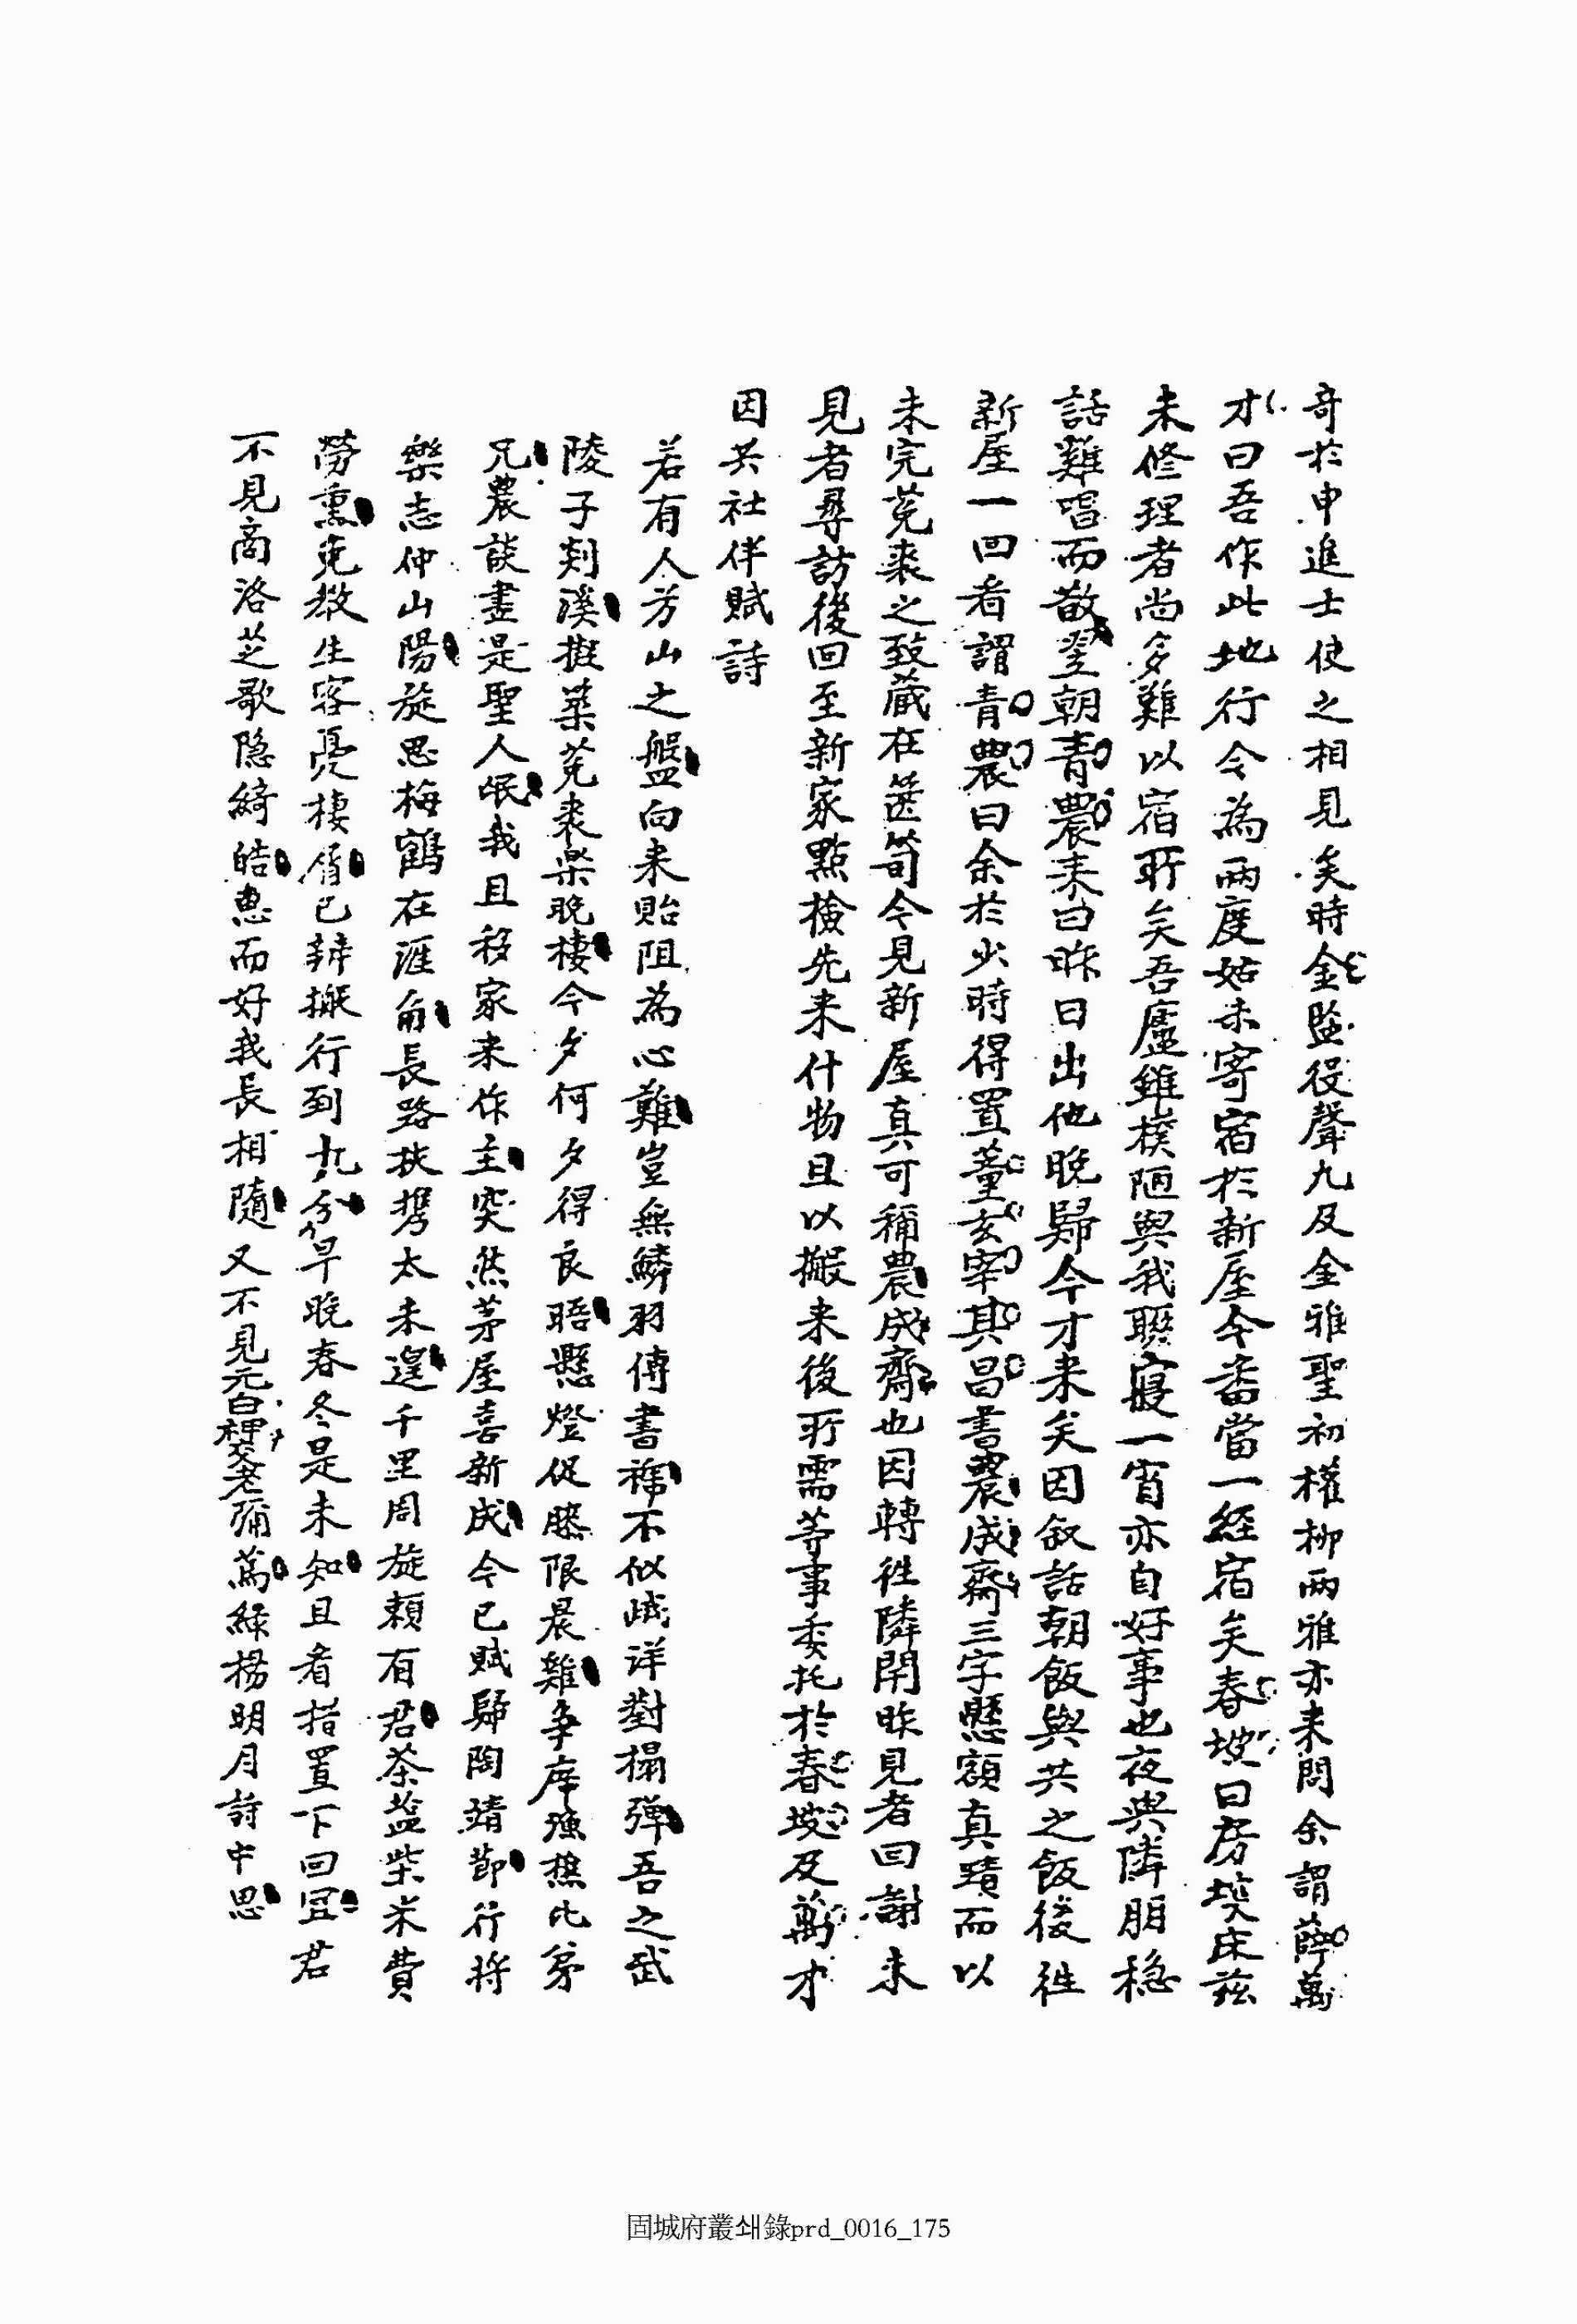 奇於申進士使之相見矣時金監役聲九及金雅聖初權柳兩雅亦來問余謂薛萬
才曰吾作此地行今為兩度姑未寄宿於新屋今番當一經宿矣春坡曰房埃床茲
未修理者尚多難以宿所矣吾廬雖樸陋與我聯寢一宵亦自好事也夜與隣朋穩
話雞唱而散翌朝青農來曰昨日出他晩歸今才来矣因敘話朝飯與共之飯後徃
新屋一回看謂青農曰余於少時得置董玄宰其昌書農成齋三字懸額真蹟而以
未完菟裘之致蔵在篋笥今見新屋真可稱農成齋也因轉徃隣閈昨見者回謝未
見者尋訪後回至新家點檢先来什物且以搬来後所需等事委托於春坡及萬才
因共社伴賦詩
若有人芳山之盤向来貽阻為心難豈無鱗羽傳書稀不似峨洋對榻彈吾之武
陵子剡溪擬築菟裘渠晩棲今夕何夕得良晤懸燈促膝限晨雞爭席漁樵比弟
兄農談盡是聖人氓我且移家来作主突然茅屋喜新成今已賦歸陶靖節行將
樂志仲山陽旋思梅鶴在涯角長路挾攜太未遑千里周旋頼有君茶鹽柴米費
勞熏免教生客憂棲屑已辦搬行到九分早晩春冬是未知且看指置下回宜君
不見商洛芝歌隐綺皓惠而好我長相隨又不見元白裡交老彌篤綠楊明月詩中思
固城府叢쇄錄prd_0016_175